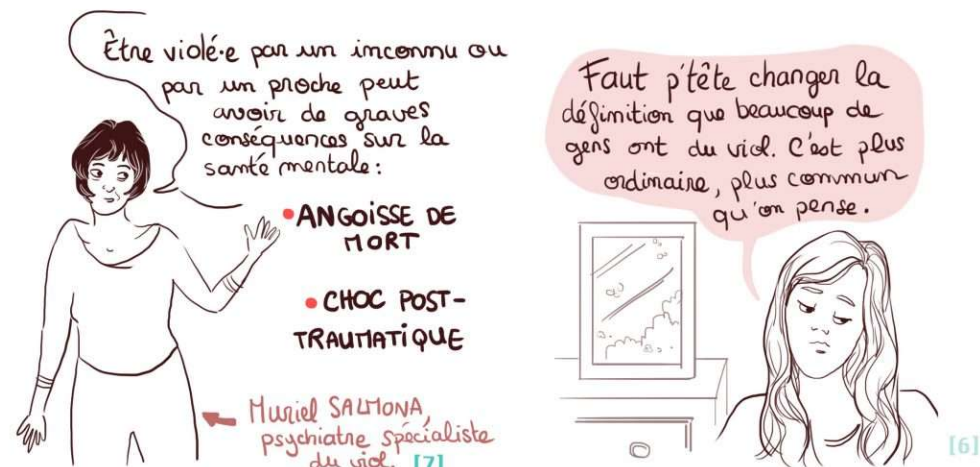 Être violé·e par un inconnu ou
par un proche peut
avoir de graves
conséquences sur la
santé mentale :
• ANGOISSE DE
MORT
• CHOC POST-
TRAUMATIQUE
Muriel SALMONA,
psychiatre spécialiste
du viol. [7]
Faut p'tête changer la
définition que beaucoup de
gens ont du viol. C'est plus
ordinaire, plus commun
qu'on pense.
[6]